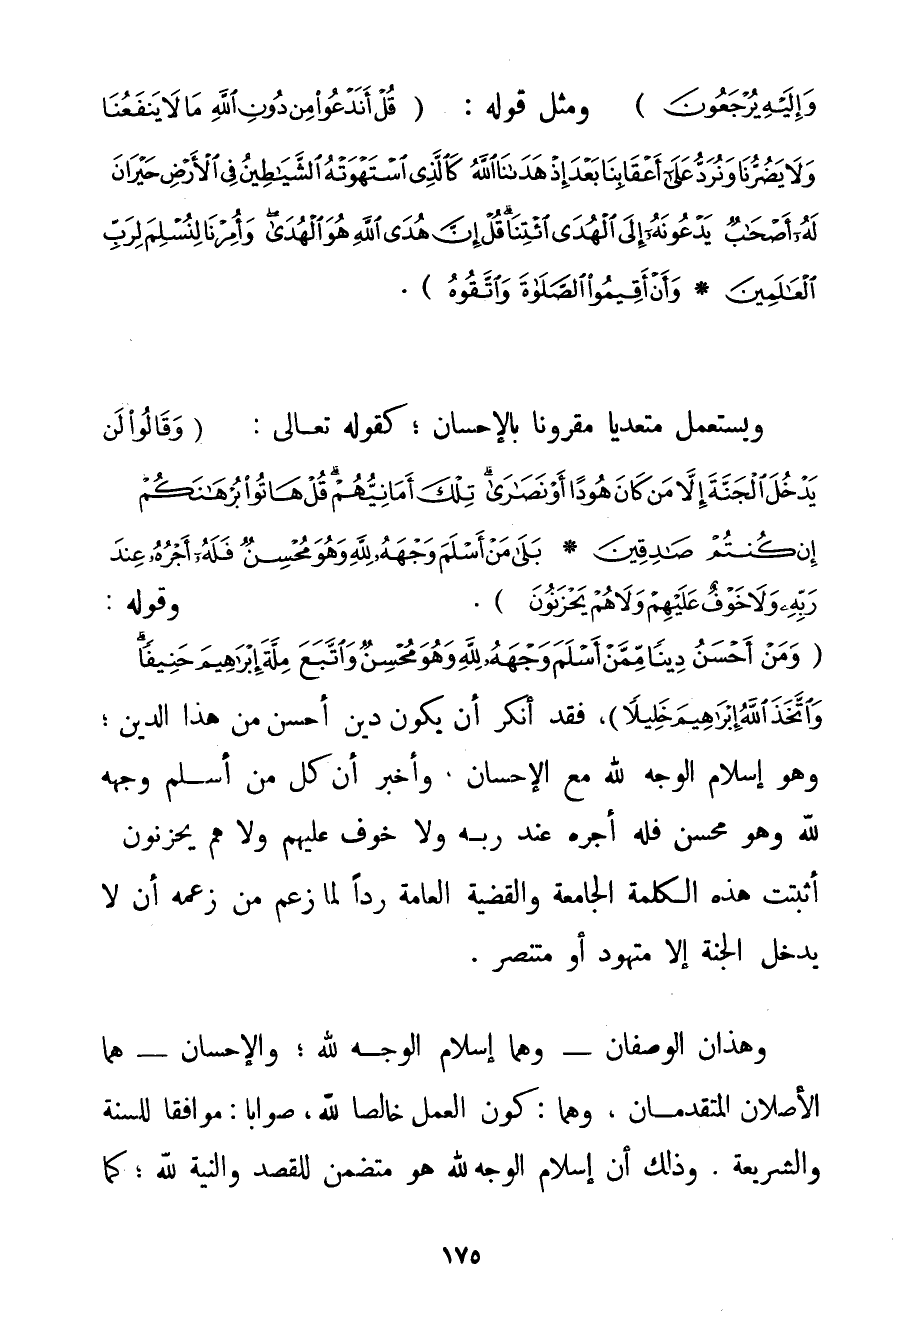 وَإِلَيْهِ يُرْجَعُونَ ) ومثل قوله : ( قُلْ أَنَدْعُوا۟ مِن دُونِ ٱللَّهِ مَا لَا يَنفَعُنَا
وَلَا يَضُرُّنَا وَنُرَدُّ عَلَىٰٓ أَعْقَابِنَا بَعْدَ إِذْ هَدَىٰنَا ٱللَّهُ كَٱلَّذِى ٱسْتَهْوَتْهُ ٱلشَّيَٰطِينُ فِى ٱلْأَرْضِ حَيْرَانَ
لَهُۥٓ أَصْحَٰبٌ يَدْعُونَهُۥٓ إِلَى ٱلْهُدَى ٱئْتِنَا ۗ قُلْ إِنَّ هُدَى ٱللَّهِ هُوَ ٱلْهُدَىٰ ۖ وَأُمِرْنَا لِنُسْلِمَ لِرَبِّ
ٱلْعَٰلَمِينَ * وَأَنْ أَقِيمُوا۟ ٱلصَّلَوٰةَ وَٱتَّقُوهُ ) .
ويستعمل متعديا مقرونا بالإحسان ؛ كقوله تعالى : ( وَقَالُوا۟ لَن
يَدْخُلَ ٱلْجَنَّةَ إِلَّا مَن كَانَ هُودًا أَوْ نَصَٰرَىٰ ۗ تِلْكَ أَمَانِيُّهُمْ ۗ قُلْ هَاتُوا۟ بُرْهَٰنَكُمْ
إِن كُنتُمْ صَٰدِقِينَ * بَلَىٰ مَنْ أَسْلَمَ وَجْهَهُۥ لِلَّهِ وَهُوَ مُحْسِنٌ فَلَهُۥٓ أَجْرُهُۥ عِندَ
رَبِّهِۦ وَلَا خَوْفٌ عَلَيْهِمْ وَلَا هُمْ يَحْزَنُونَ ) . وقوله :
( وَمَنْ أَحْسَنُ دِينًا مِّمَّنْ أَسْلَمَ وَجْهَهُۥ لِلَّهِ وَهُوَ مُحْسِنٌ وَٱتَّبَعَ مِلَّةَ إِبْرَٰهِيمَ حَنِيفًا ۗ
وَٱتَّخَذَ ٱللَّهُ إِبْرَٰهِيمَ خَلِيلًا ) ، فقد أنكر أن يكون دين أحسن من هذا الدين ؛
وهو إسلام الوجه لله مع الإحسان . وأخبر أن كل من أسلم وجهه
لله وهو محسن فله أجره عند ربه ولا خوف عليهم ولا هم يحزنون
أثبتت هذه الكلمة الجامعة والقضية العامة رداً لما زعم من زعمه أن لا
يدخل الجنة إلا متهود أو متنصر .
وهذان الوصفان — وهما إسلام الوجه لله ؛ والإحسان — هما
الأصلان المتقدمان ، وهما : كون العمل خالصا لله ، صوابا : موافقا للسنة
والشريعة . وذلك أن إسلام الوجه لله هو متضمن للقصد والنية لله ؛ كما
١٧٥